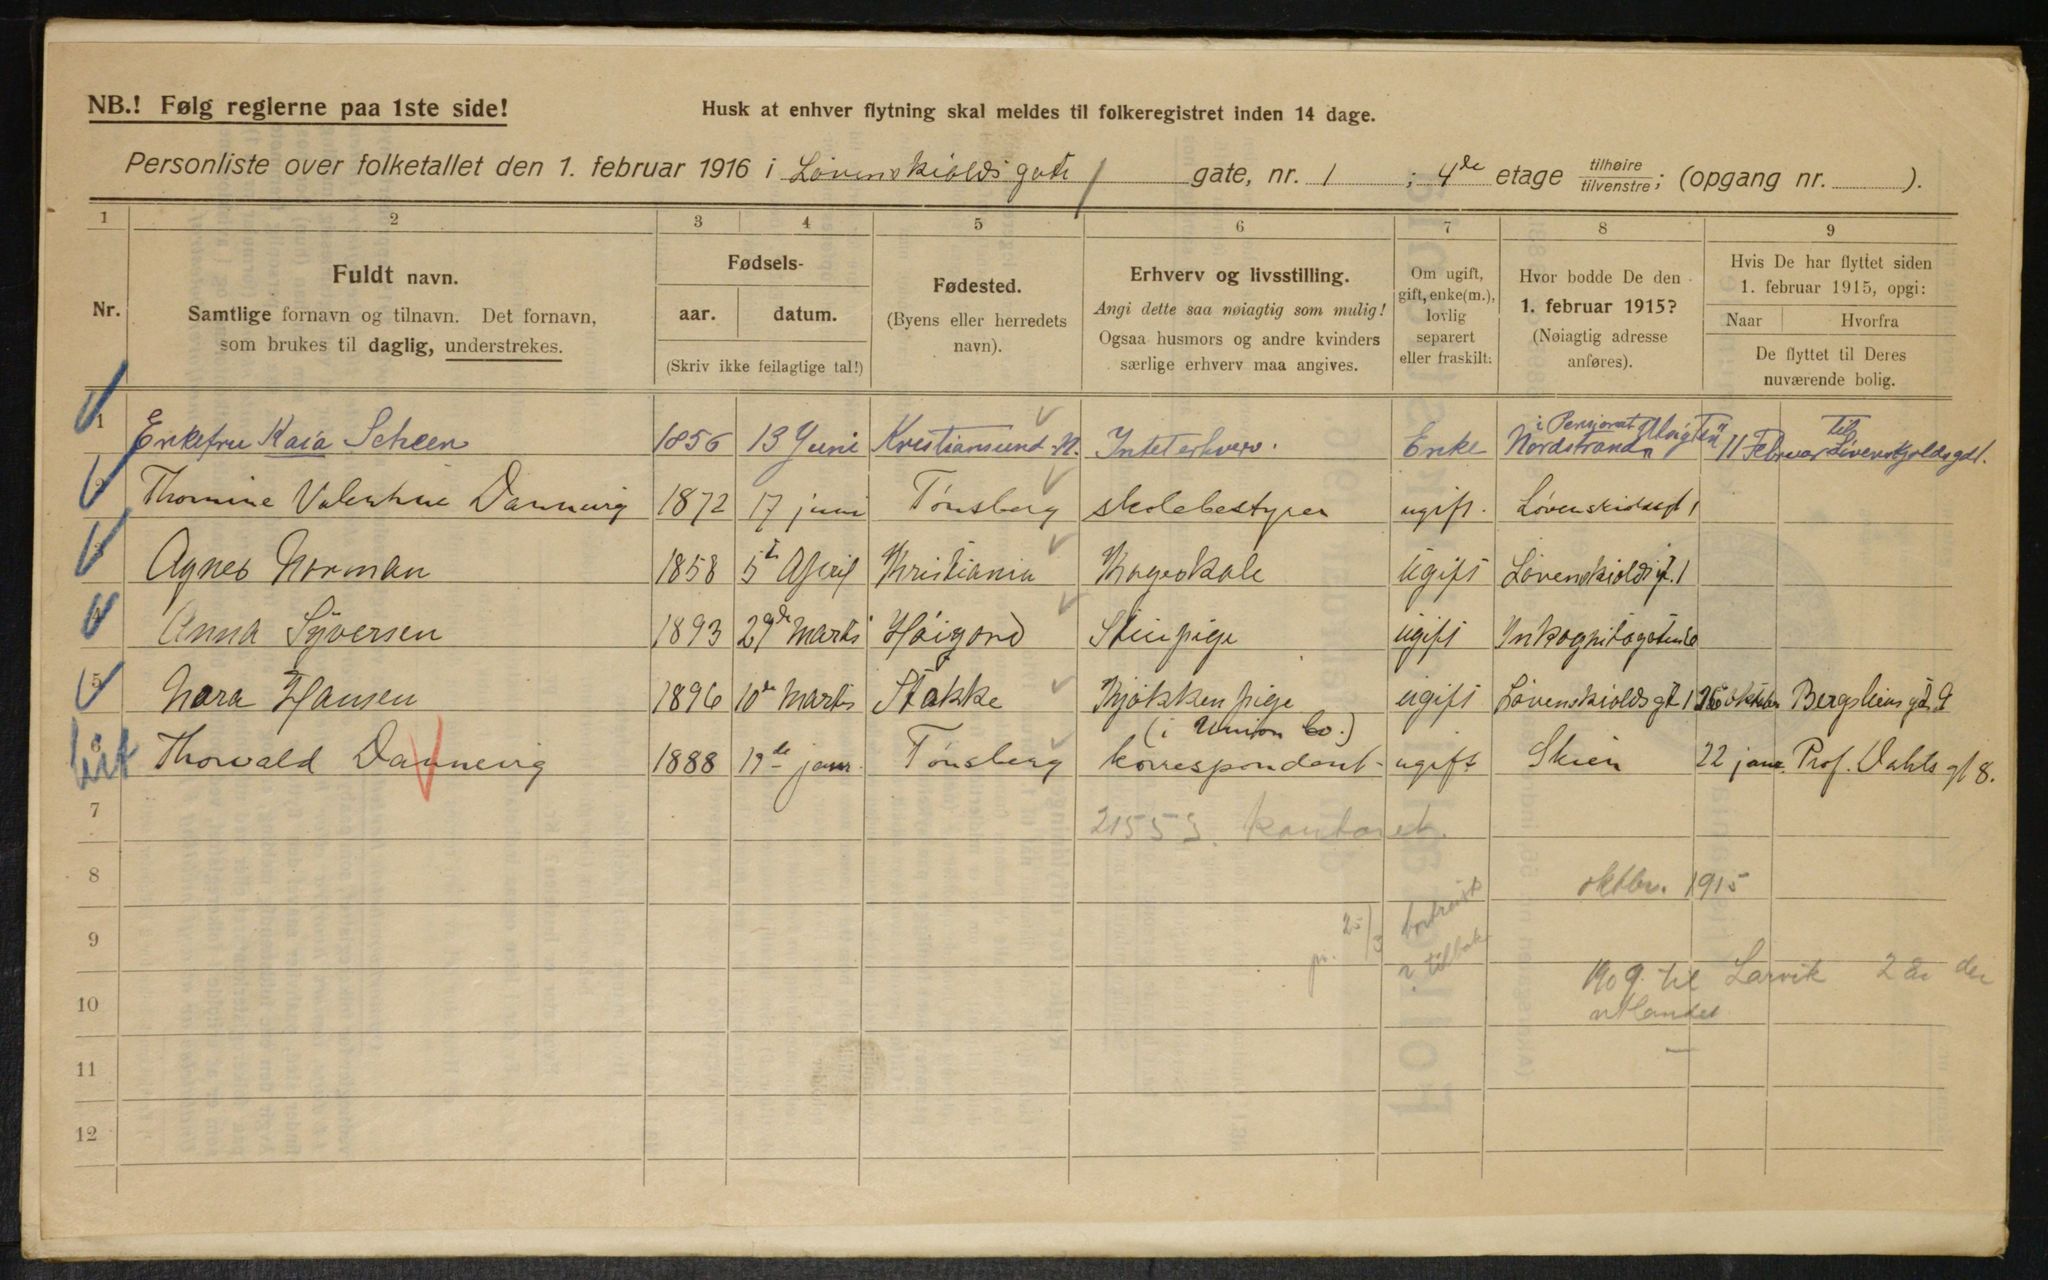 NB.! Følg reglerne paa 1ste side!
Husk at enhver flytning skal meldes til folkeregistret inden 14 dage.
Personliste over folketallet den 1. februar 1916 i Løvenskiolds gate gate, nr. 1 ; 4de etage tilhøire/tilvenstre; (opgang nr. ).
1 2 3 4 5 6 7 8 9
Nr.
Fuldt navn.
Samtlige fornavn og tilnavn. Det fornavn,
som brukes til daglig, understrekes.
Fødsels-
aar. datum.
(Skriv ikke feilagtige tal!)
Fødested.
(Byens eller herredets
navn).
Erhverv og livsstilling.
Angi dette saa nøiagtig som mulig!
Ogsaa husmors og andre kvinders
særlige erhverv maa angives.
Om ugift,
gift, enke(m.),
lovlig
separert
eller fraskilt:
Hvor bodde De den
1. februar 1915?
(Nøiagtig adresse
anføres).
Hvis De har flyttet siden
1. februar 1915, opgi:
Naar Hvorfra
De flyttet til Deres
nuværende bolig.
1 Enkefru Kaia Scheen 1856 13 Juni Kristiansund N. Intet erhverv. Enke i Pensionat Nordstrand 11 Februar til Løvenskjoldsgd1.
2 Thomine Valentine Dannevig 1872 17 juni Tønsberg skolebestyrer ugift. Løvenskioldsgt 1
3 Agnes Norman 1858 5te April Kristiania Kogeskole ugift Løvenskiolds gt. 1
4 Anna Syversen 1893 29de Marts Høigord Stuepige ugift Inkognitogaten
5 Nora Hansen 1896 10de Marts Stokke Kjøkkenpige ugift Løvenskiolds gt 1 oktober Bergsliens gt. 9
6 Thorvald Dannevig 1888 19de janr. Tønsberg korrespondent (i Union Co.) ugift Skien 22 janr. Prof. Dahls gt 8.
7 21553 kontoret.
8 oktbr. 1915
9 25/3 bortreist
tilbake
10 1909 til Larvik 2 år der
utlandet
11
12